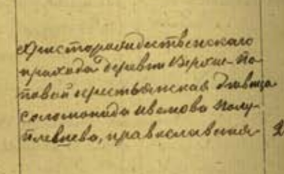 Христорождественскаго
прихода деревни Верхне-По-
повой крестьянская девица
Соломонида Иванова Полу-
православная